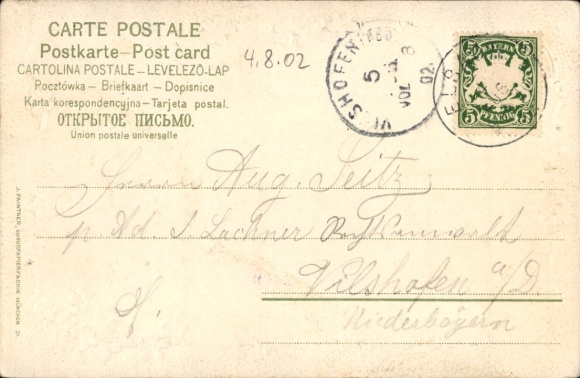 CARTE POSTALE
Postkarte–Post card
CARTOLINA POSTALE–LEVELEZŐ-LAP
Pocztówka – Briefkaart – Dopisnice
Karta korespondencyjna – Tarjeta postal.
ОТКРЫТОЕ ПИСЬМО.
Union postale universelle
4.8.02
VILSHOFEN
5
VOL
8
02.
BAYERN
5 5
5 5
PFENNIG
Herrn Aug. Seitz
p. Ad. J. Lachner Rechtsanwalt
Vilshofen a/D.
Niederbayern
J. PAINTNER, BUNDPAPIERFABRIK MÜNCHEN 21.